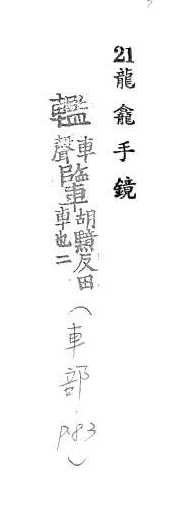 21 龍龕手鏡
轞 車聲 胡黤反田車也二 (車部 p.83)